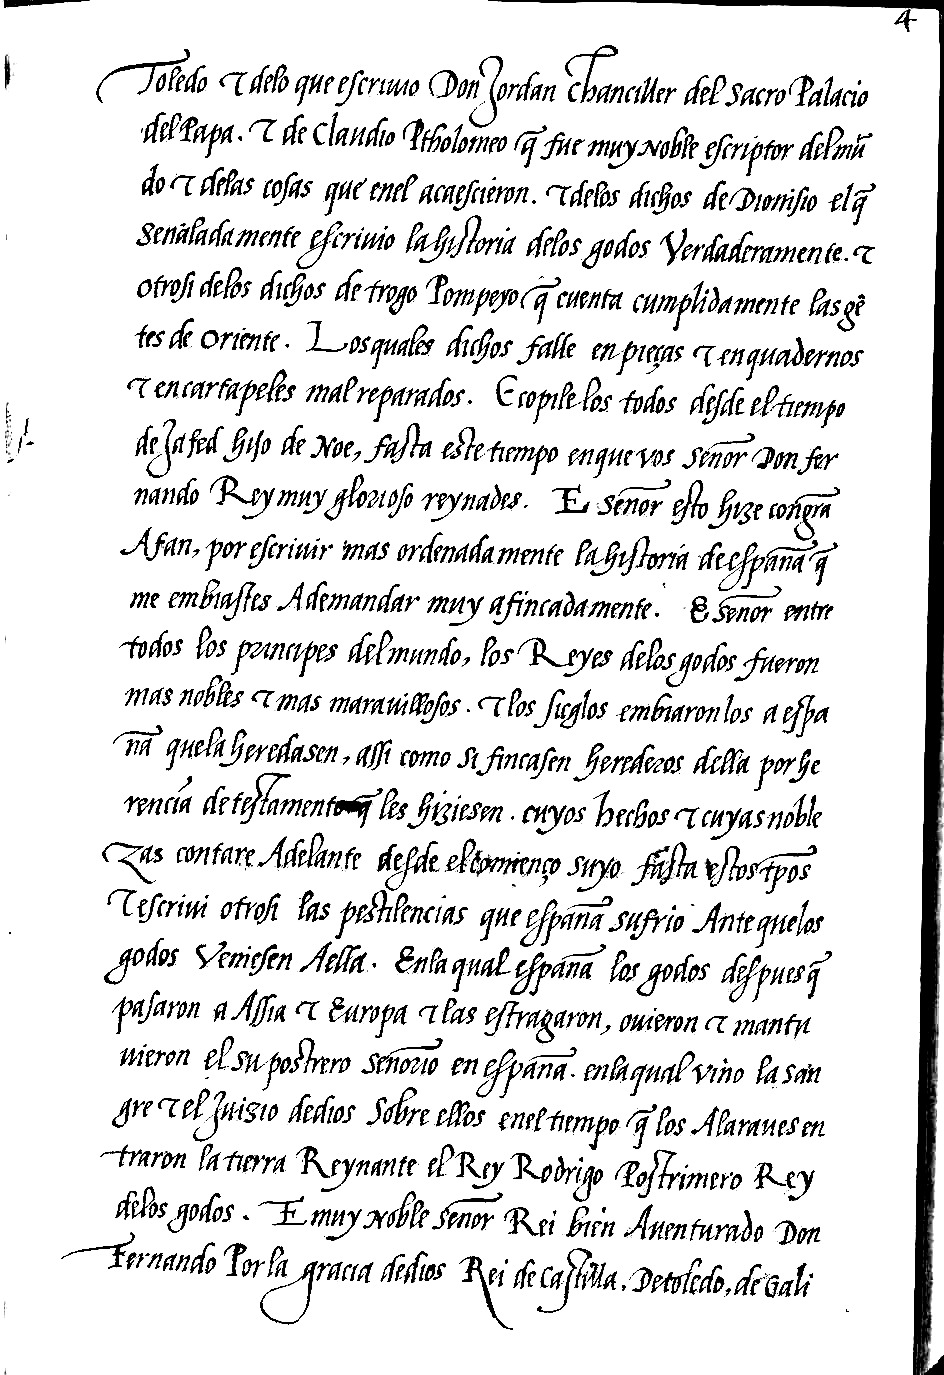 4
Toledo τ delo que escriuio Don Jordan Chanciller del sacro Palacio
del Papa. τ de Claudio Ptholomeo q̃ fue muy noble escriptor del mũ
do τ delas cosas que enel acaescieron. τ delos dichos de Dionisio el q̃
senaladamente escriuio la historia delos godos Verdaderamente. τ
otrosi delos dichos de trogo Pompeyo q̃ cuenta cumplidamente las gẽ
tes de oriente. Los quales dichos falle en pieças τ en quadernos
τ en cartapeles mal reparados. E copile los todos desde el tiempo
de Jafed hijo de Noe, fasta este tiempo en que vos señor Don fer
nando Rey muy glorioso reynades. E señor esto hize con grã
Afan, por escriuir mas ordenadamente la historia de españa q̃
me embiastes A demandar muy afincadamente. E señor entre
todos los principes del mundo, los Reyes delos godos fueron
mas nobles τ mas marauillosos. τ los siglos embiaron los a espa
ña que la heredasen, assi como si fincasen herederos della por he
rencia de testamento q̃ les hiziesen. cuyos hechos τ cuyas noble
zas contare Adelante desde el comienço suyo fasta estos tp̃os
τ escriui otrosi las pestilencias que españa sufrio Ante que los
godos Veniesen Aella. En la qual españa los godos despues q̃
pasaron a Assia τ Europa τ las estragaron, ouieron τ mantu
uieron el su postrero señorio en españa. en la qual vino la san
gre τ el Juizio de dios sobre ellos en el tiempo q̃ los Alaraues en
traron la tierra Reynante el Rey Rodrigo Postrimero Rey
delos godos. E muy noble señor Rei bien Auenturado Don
Fernando Por la gracia de dios Rei de Castilla. De toledo, de Gali